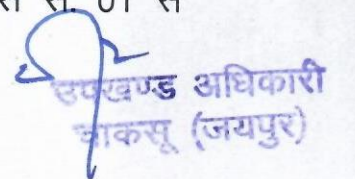 सं. 01 से
उपखण्ड अधिकारी
चाकसू (जयपुर)